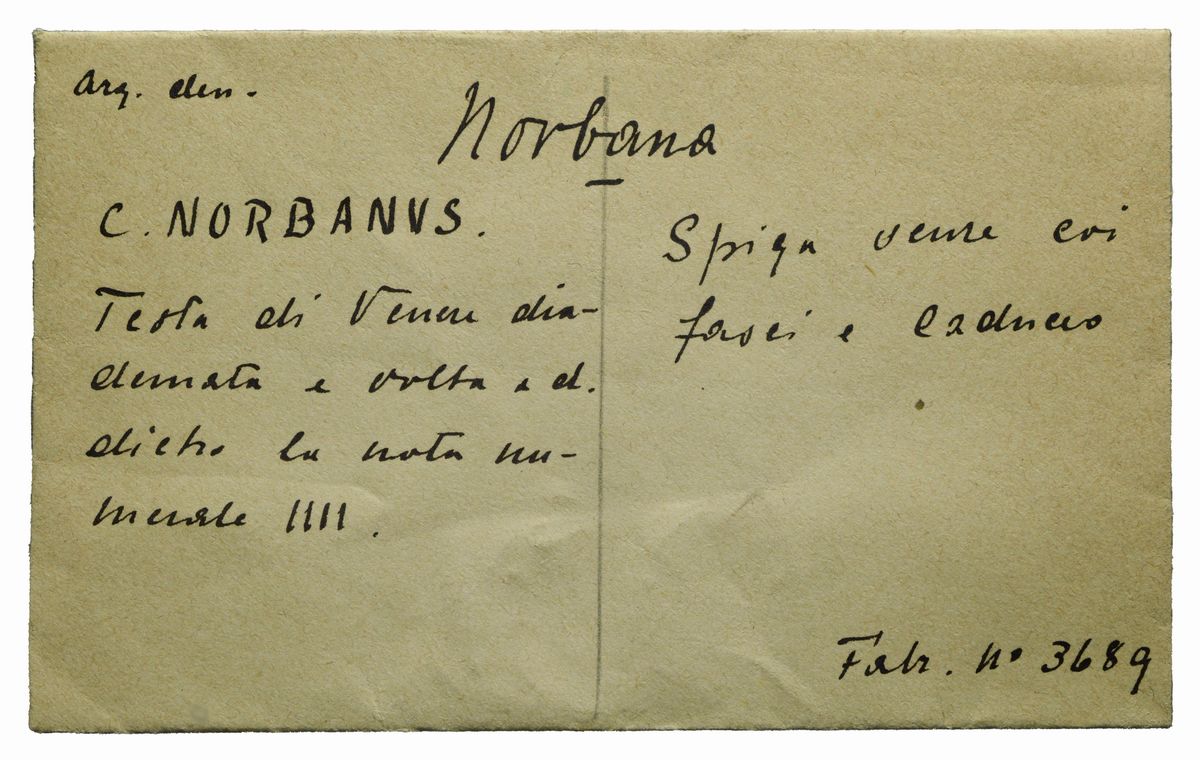 Arg. den.
Norbana
C. NORBANVS.
Testa di Venere dia-
demata e volta a d.
dietro la nota nu-
merale IIII.
Spiga coi
fasci e Caduceo
Fabr. Nº 3689